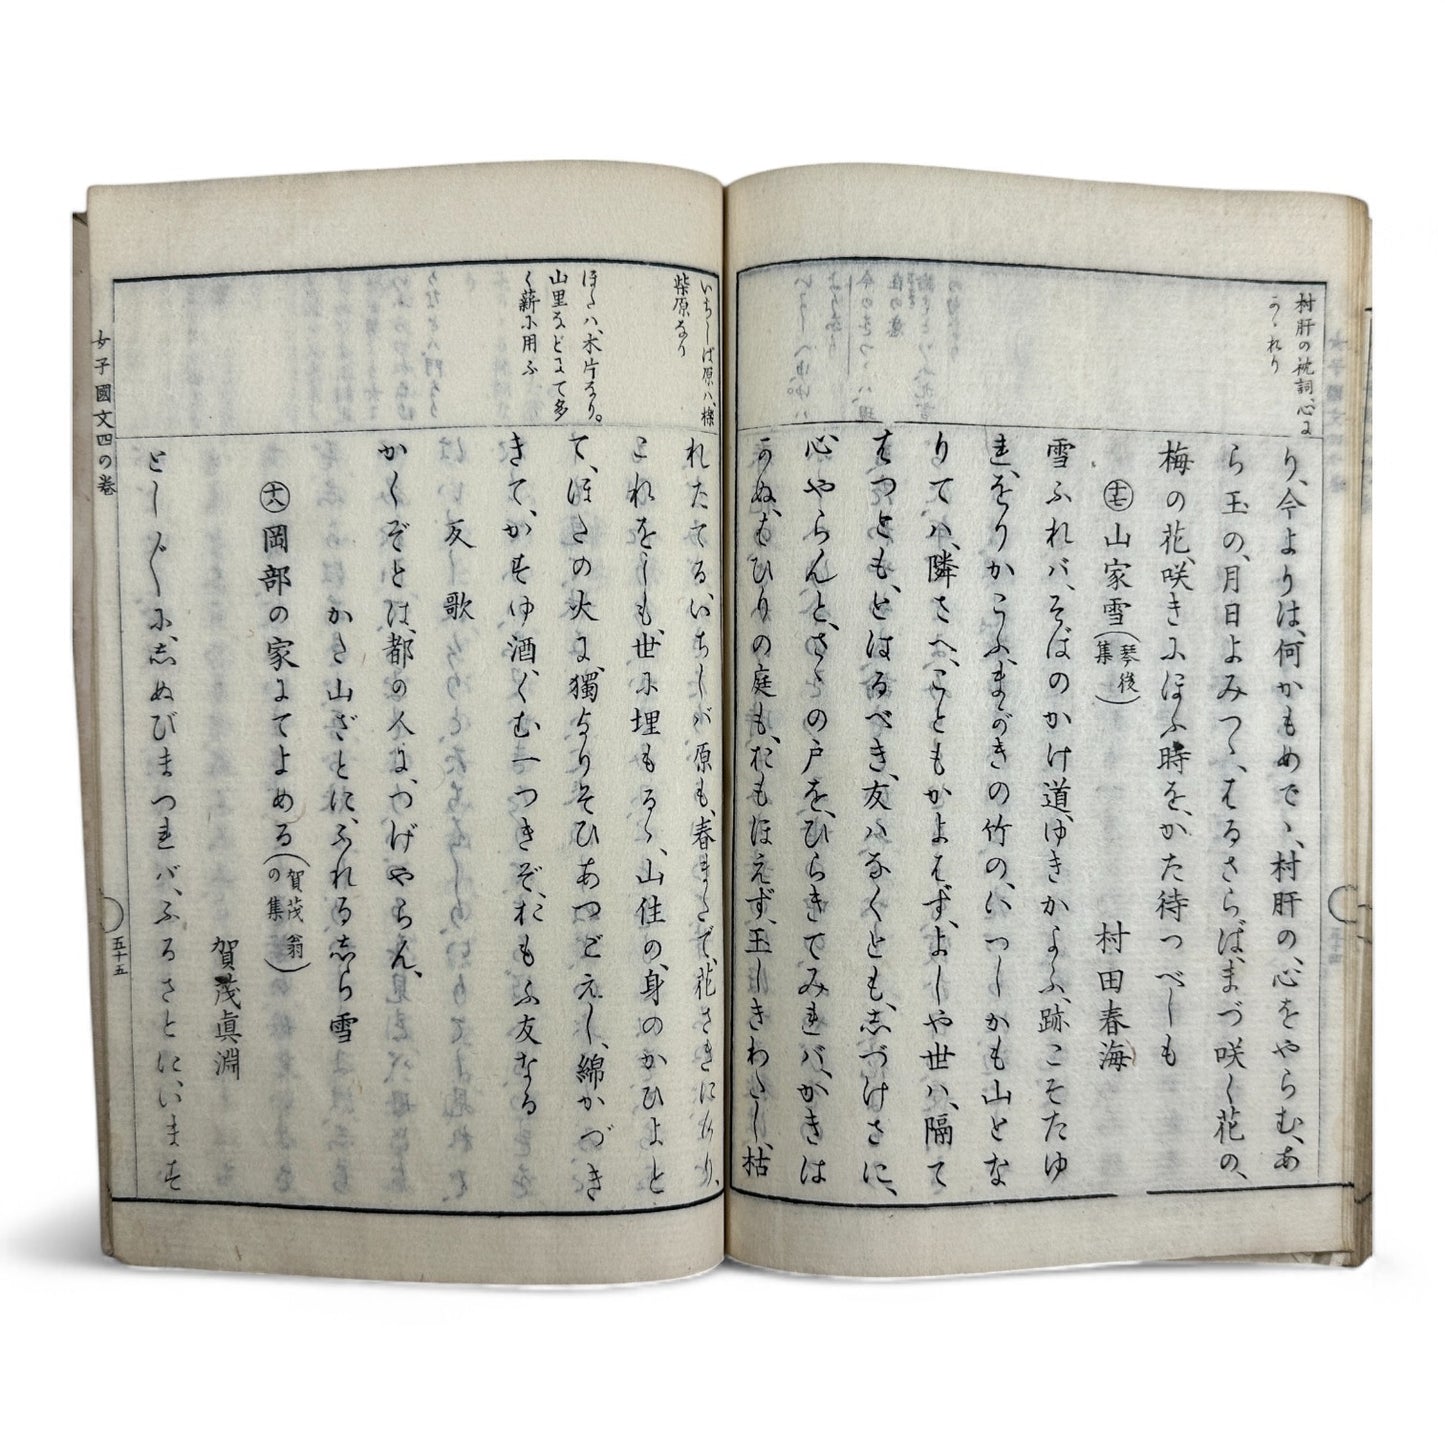 村肝の枕詞、心に
かゝれり
り、今よりは、何かもめでゝ、村肝の、心をやらむ、あ
ら玉の、月日よみつゝ、はるさらば、まづ咲く花の、
梅の花、咲きにほふ時を、かた待つべしも
十七 山家雪(琴後集) 村田春海
雪ふれバ、そばのかけ道、ゆきかよふ、跡こそたゆ
れ、をりかこふ、まがきの竹の、いつしかも山とな
りてハ、隣さへ、こともかよはず、よしや世ハ、隔て
はつとも、とはるべき、友ハなくとも、しづけさに、
心やらんと、さゝの戸を、ひらきてみれバ、かきは
かぬ、もひりの庭も、おもほえず、玉しきわたし、枯
いちしば原ハ、櫟
柴原なり
ほたハ、木片なり。
山里などにて多
く薪に用ふ
れたてる、いちしバ原も、春またで、花さきにけり、
これをしも、世に埋もるゝ、山住の、身のかひよと
て、ほたの火に、獨よりそひ、あつどえし、綿かづき
きて、かすゆ酒、くむ一つきぞ、おもふ友なる
反歌
かくぞとは、都の人に、つげやらん、
かた山ざとに、ふれるしら雪
十八 岡部の家にてよめる(賀茂翁の集)
賀茂眞淵
としごとに、しぬびまつれバ、ふるさとに、います
女子國文四の巻
五十五